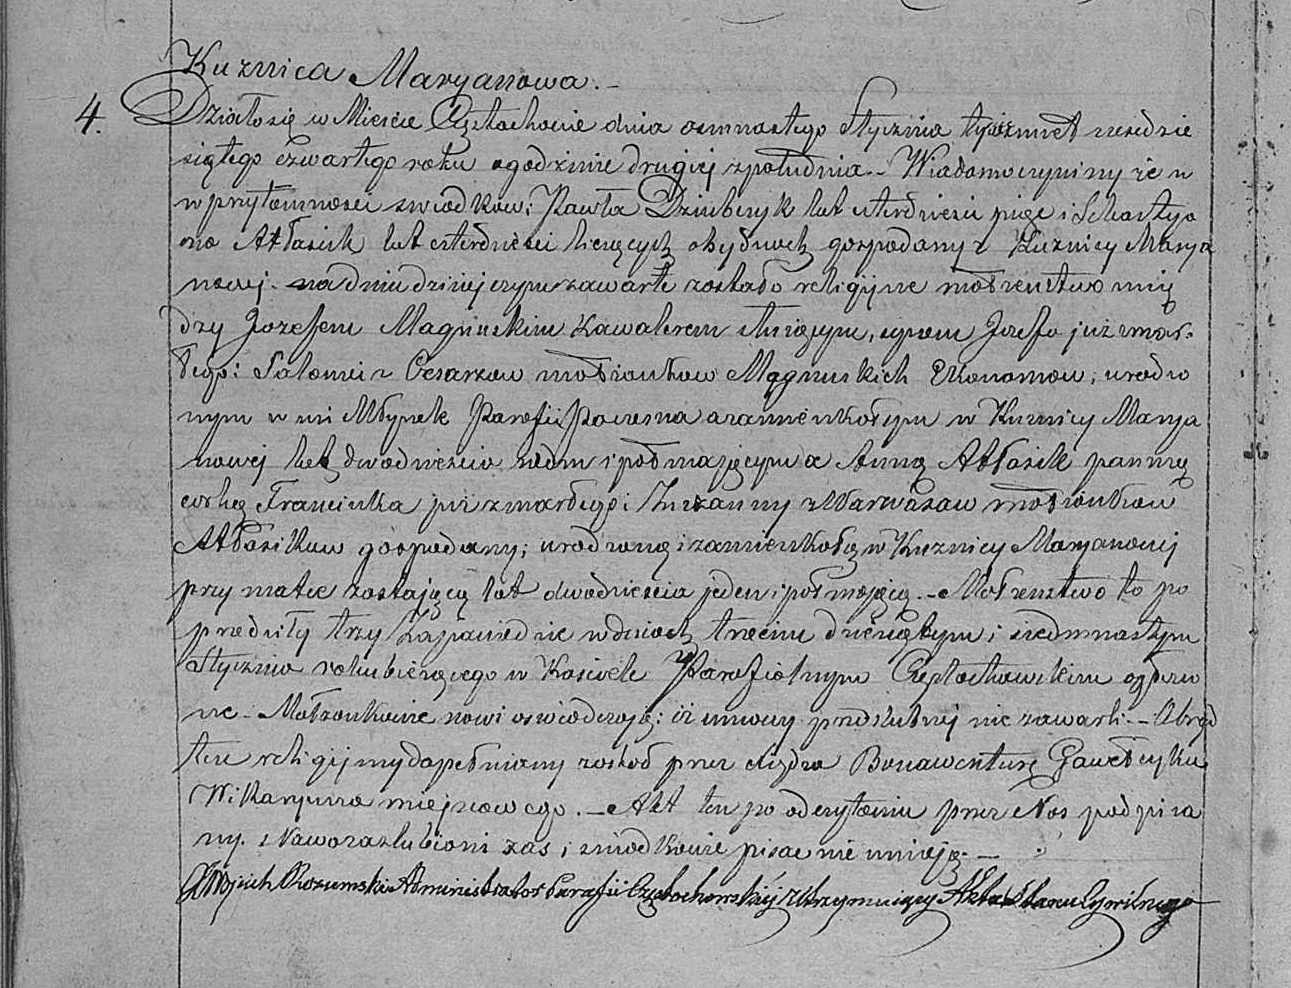 Kuznica Maryanowa.-
4. Działo się w Mieście Częstochowie dnia osmnastego Stycznia tysiąc
siątego czwartego roku o godzinie drugiej z południa.- Wiadomo czynimy że w
w przytomnosci swiadkow: Pawła Dziubczyk lat czterdziesci pięc i Sebastya
na Atłasik lat czterdziesci liczących obydwoch gospodarzy z Kuznicy Marya
nowej. na dniu dzisiejszym zawarte zostało religijne małżenstwo mię
dzy Jozefem Magnuskim Kawalerem służącym, synem Jozefa już zmar-
łego i Salomei z Cesarzow małżonkow Magnuskich Ekonomow, urodzo
nym w wsi Młynek Parafii Poczesna a zamieszkałym w Kuznicy Marya
nowej lat dwadziescia siedm i poł mającym a Anną Atłasik panną
corką Franciszka już zmarłego i Zuzanny z Warwasow małżonkow
Atłasikow gospodarzy; urodzoną i zamieszkałą w Kuznicy Maryanowej
przy matce zostającą lat dwadziescia jeden i poł mającą.- Małżenstwo to po
przedziły trzy Zapowiedzie w dniach trzecim dziesiątym i siedmnastym
Stycznia roku bieżącego w Kosciele Parafialnym Częstochowskim ogłoszo
ne.- Małżonkowie nowi oswiadczają: iż umowy przedslubnej nie zawarli.- Obrząd
ten religijny dopełniony został przez Xiędza Bonawenturę Gawełczyka
Wikaryusza miejscowego.- Akt ten po odczytaniu przez Nas podpisa
ny. Nowozaslubieni zas i swiadkowie pisac nie umieją.-
X Wojciech Rozumski Administrator Parafii Częstochowskiej utrzymujący Akta Stanu Cywilnego